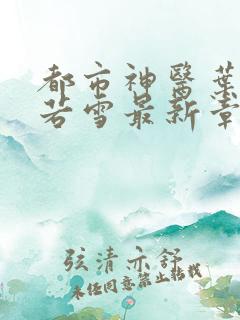 都市神醫葉
若雪最新章
弦清亦舒
未经同意禁止转载